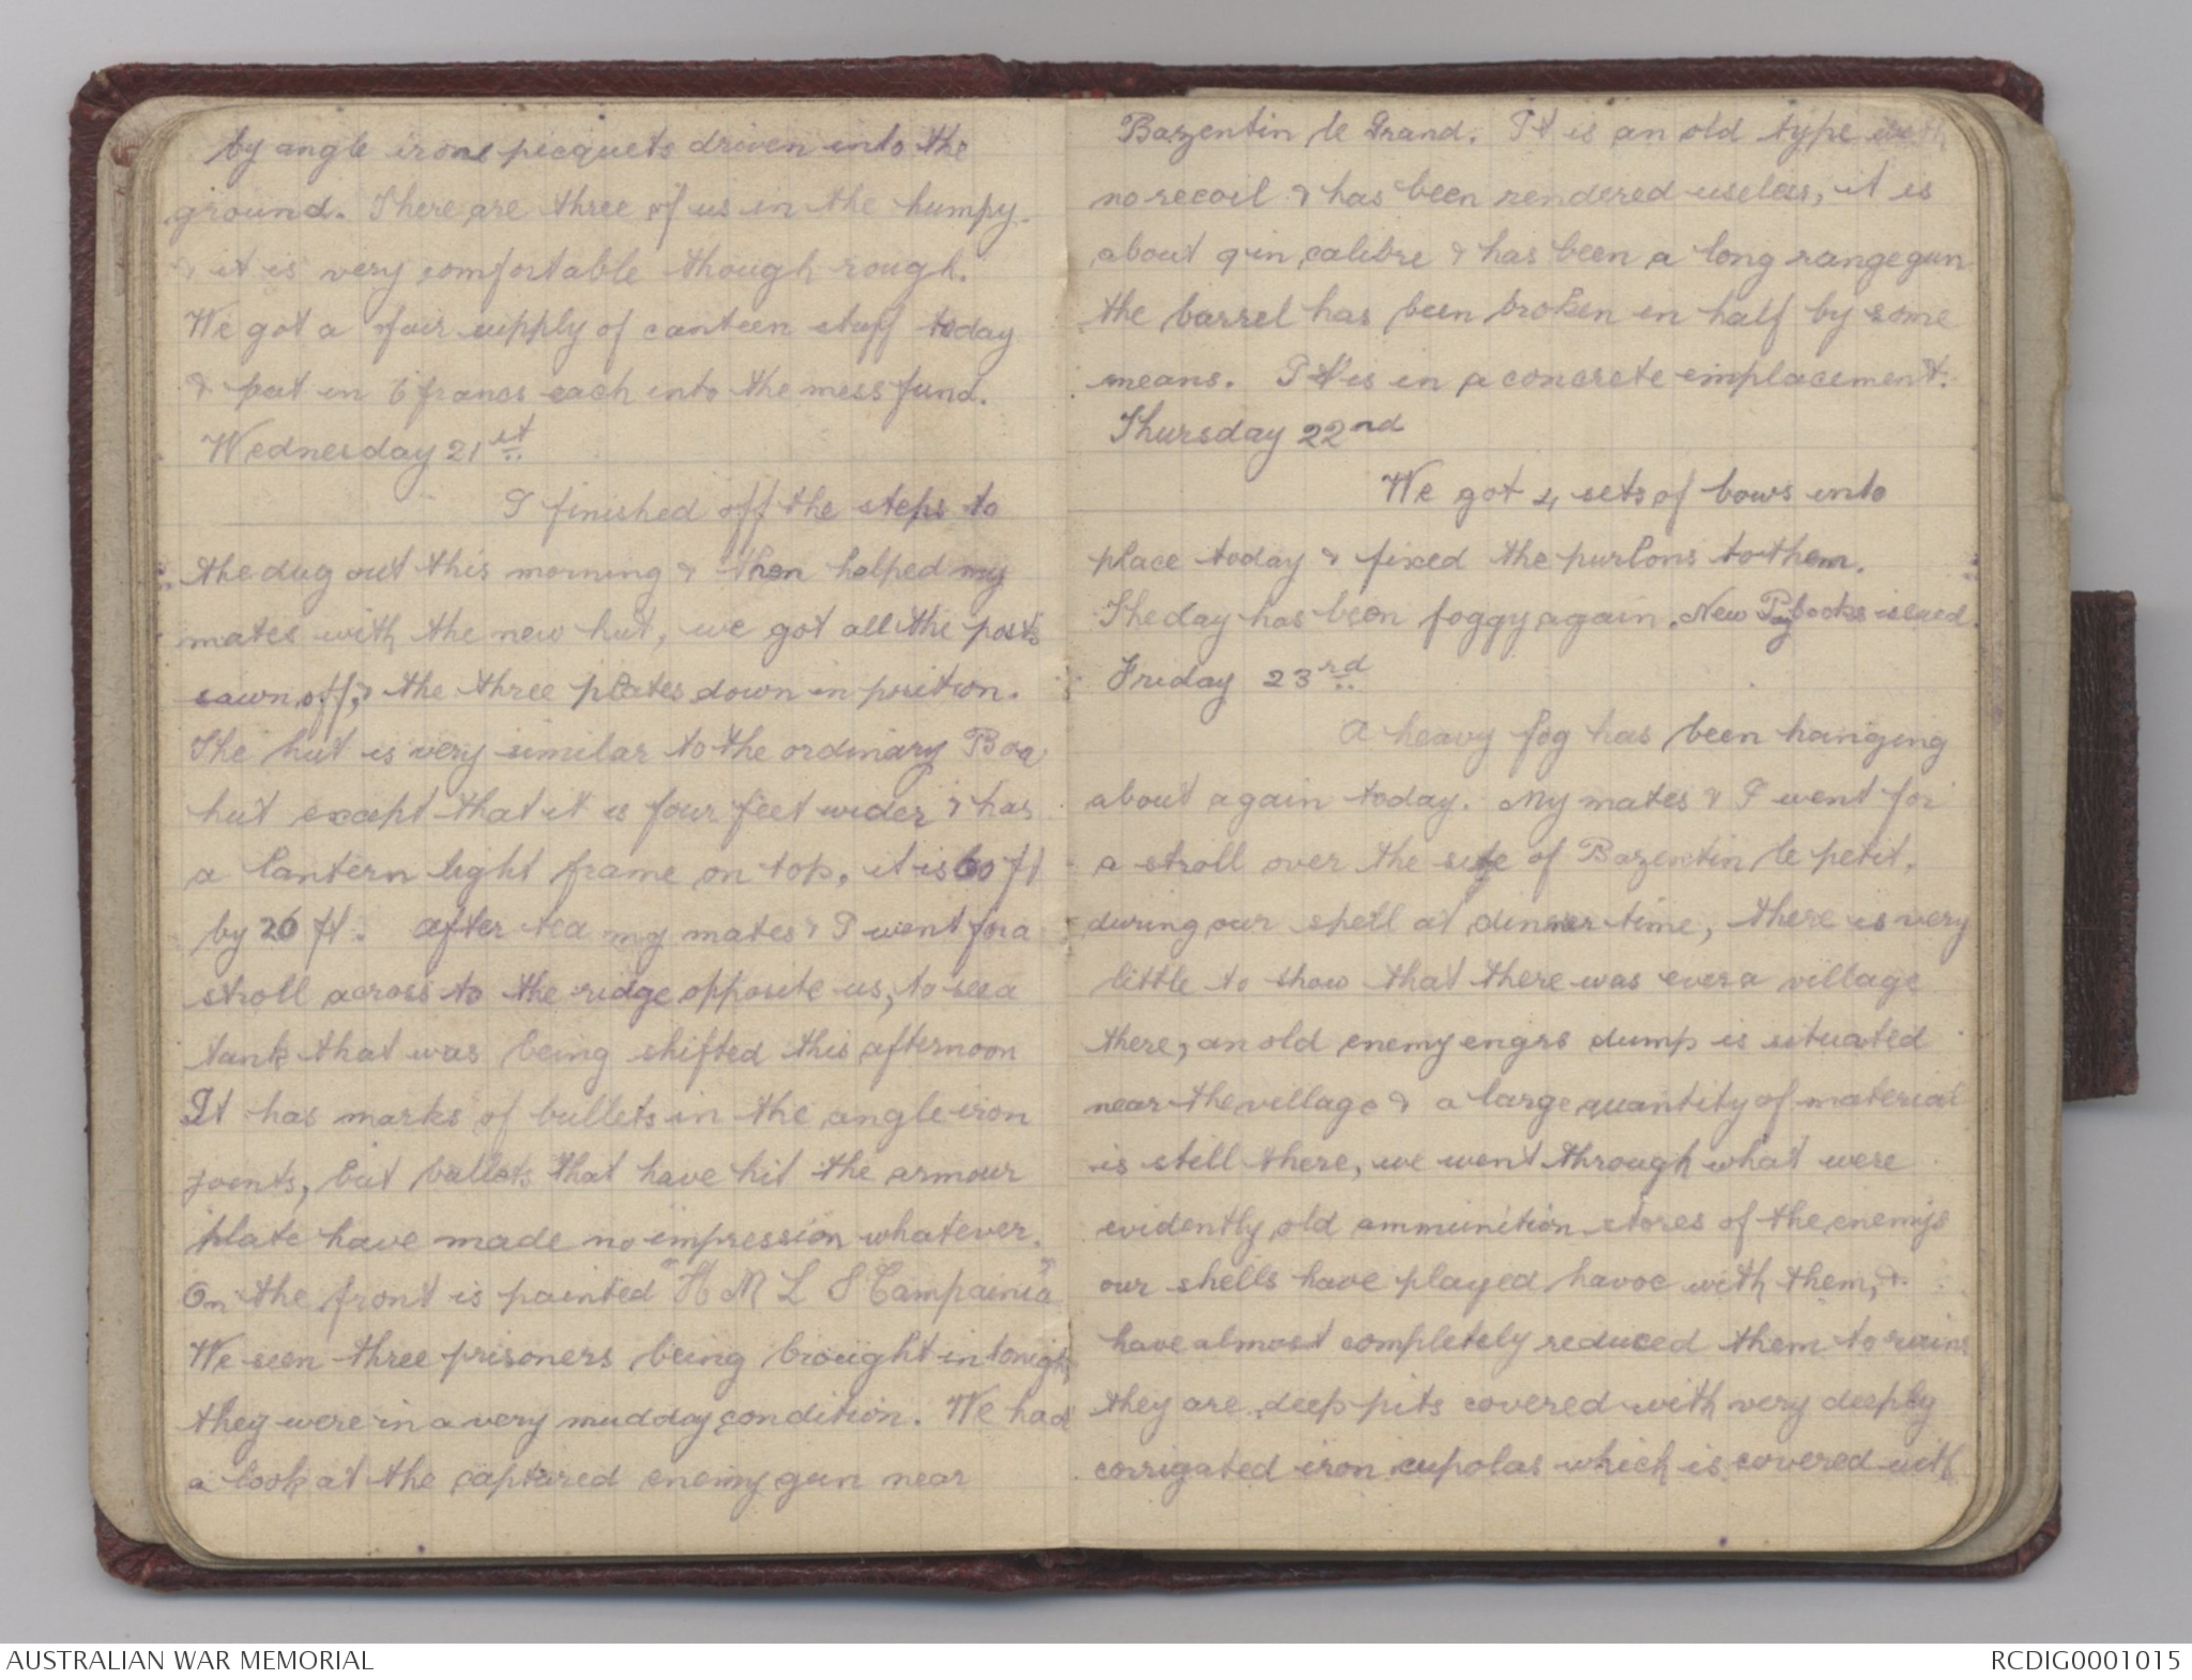 by angle irons picquets driven into the
ground. There are three of us in the humpy.
& it is very comfortable though rough.
We got a fair supply of canteen stuff today
& put in 6 francs each into the mess fund.
Wednesday 21st
I finished off the steps to
the dug out this morning & then helped my
mates with the new hut, we got all the posts
sawn off, & the three plates down in position.
The hut is very similar to the ordinary
hut except that it is four feet wider & has
a lantern light frame on top, it is 60 ft
by 26 ft. After tea my mates & I went for a
stroll across to the ridge opposite us, to see a
tank that was being shifted this afternoon
It has marks of bullets in the angle iron
joints, but bullets that have hit the armour
plate have made no impression whatever.
On the front is painted "H M L S Campainia"
We seen three prisoners being brought in tonight
they were in a very mudday condition. We had
a look at the captured enemy gun near
Bazentin le Grand. It is an old type with
no recoil & has been rendered useless, it is
about 9 in calibre & has been a long range gun
the barrel has been broken in half by some
means. It is in a concrete emplacement.
Thursday 22nd
We got 4 sets of bows into
place today & fixed the purlons to them.
The day has been foggy again. New Pay books issued.
Friday 23rd
A heavy fog has been hanging
about again today. My mates & I went for
a stroll over the site of Bazentin le petit,
during our spell at dinner time, there is very
little to show that there was ever a village
there, an old enemy engrs dump is situated
near the village & a large quantity of material
is still there, we went through what were
evidently old ammunition stores of the enemys
our shells have played havoc with them, &
have almost completely reduced them to ruins
they are deep pits covered with very deeply
corrigated iron cupolas which is covered with
AUSTRALIAN WAR MEMORIAL
RCDIG0001015